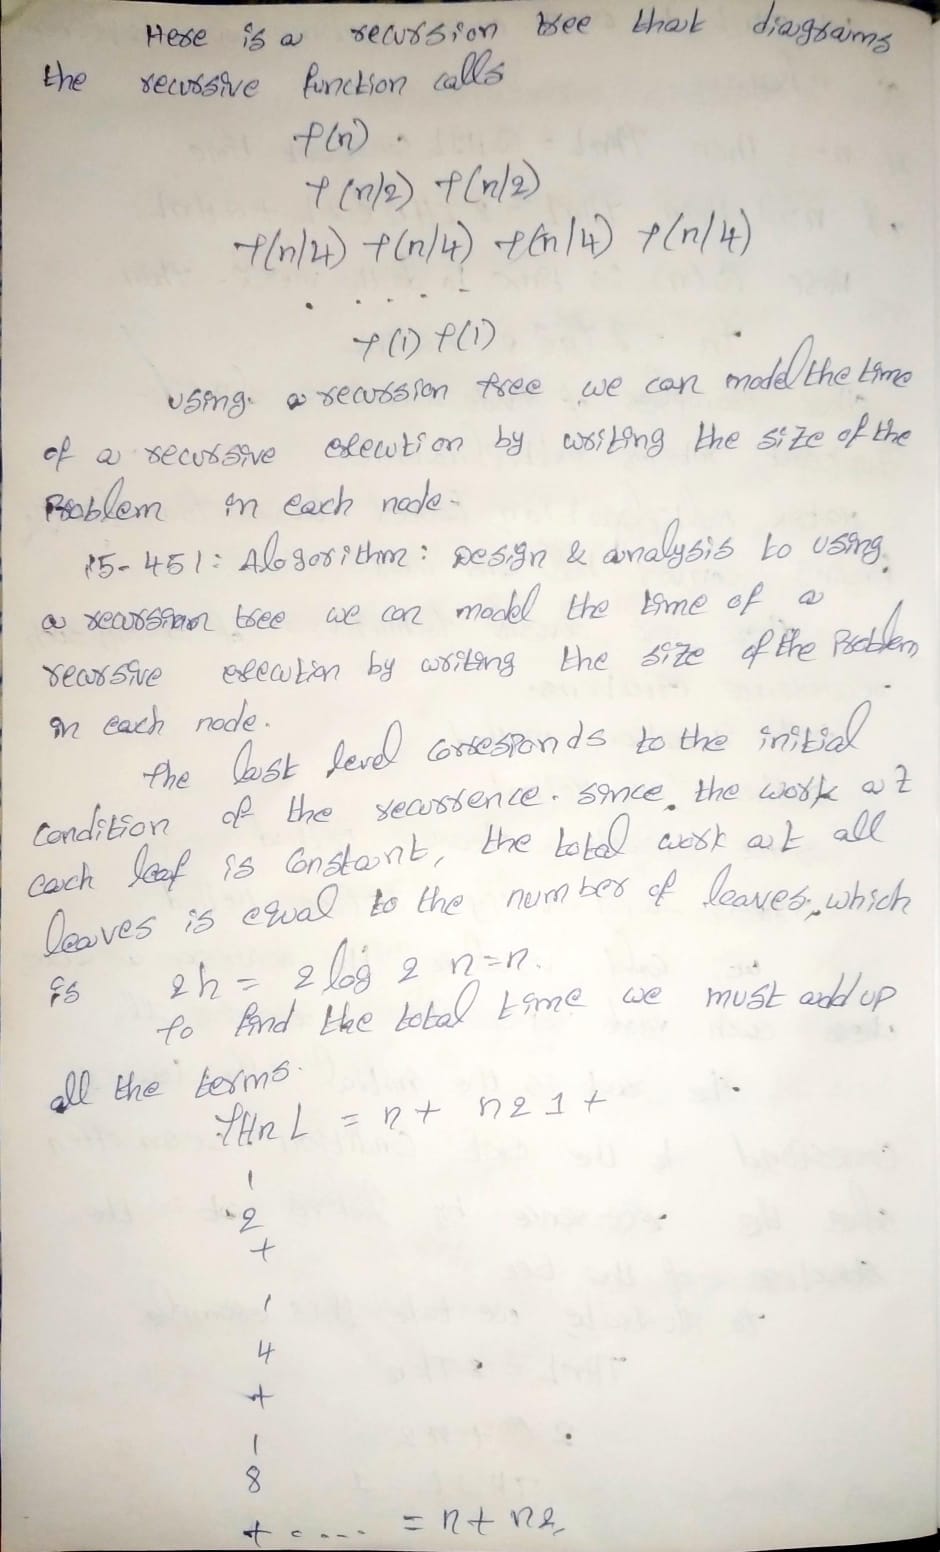 Here is a recursion tree that diagrams
the recursive function calls
T(n)
T(n/2) T(n/2)
T(n/4) T(n/4) T(n/4) T(n/4)
. . . . .
T(1) T(1)
using a recursion tree we can model the time
of a recursive execution by writing the size of the
Problem in each node.
15-451: Alogorithm: Design & analysis to using
a recursion tree we can model the time of a
recursive execution by writing the size of the Problem
in each node.
the last level corresponds to the initial
condition of the recurrence. since, the work at
each leaf is Constant, the total work at all
leaves is equal to the number of leaves, which
is 2h = 2 log 2 n=n.
to find the total time we must add up
all the terms.
= n + n 2 1 +
1
2
+
1
4
+
1
8
+ .... = n + n2,